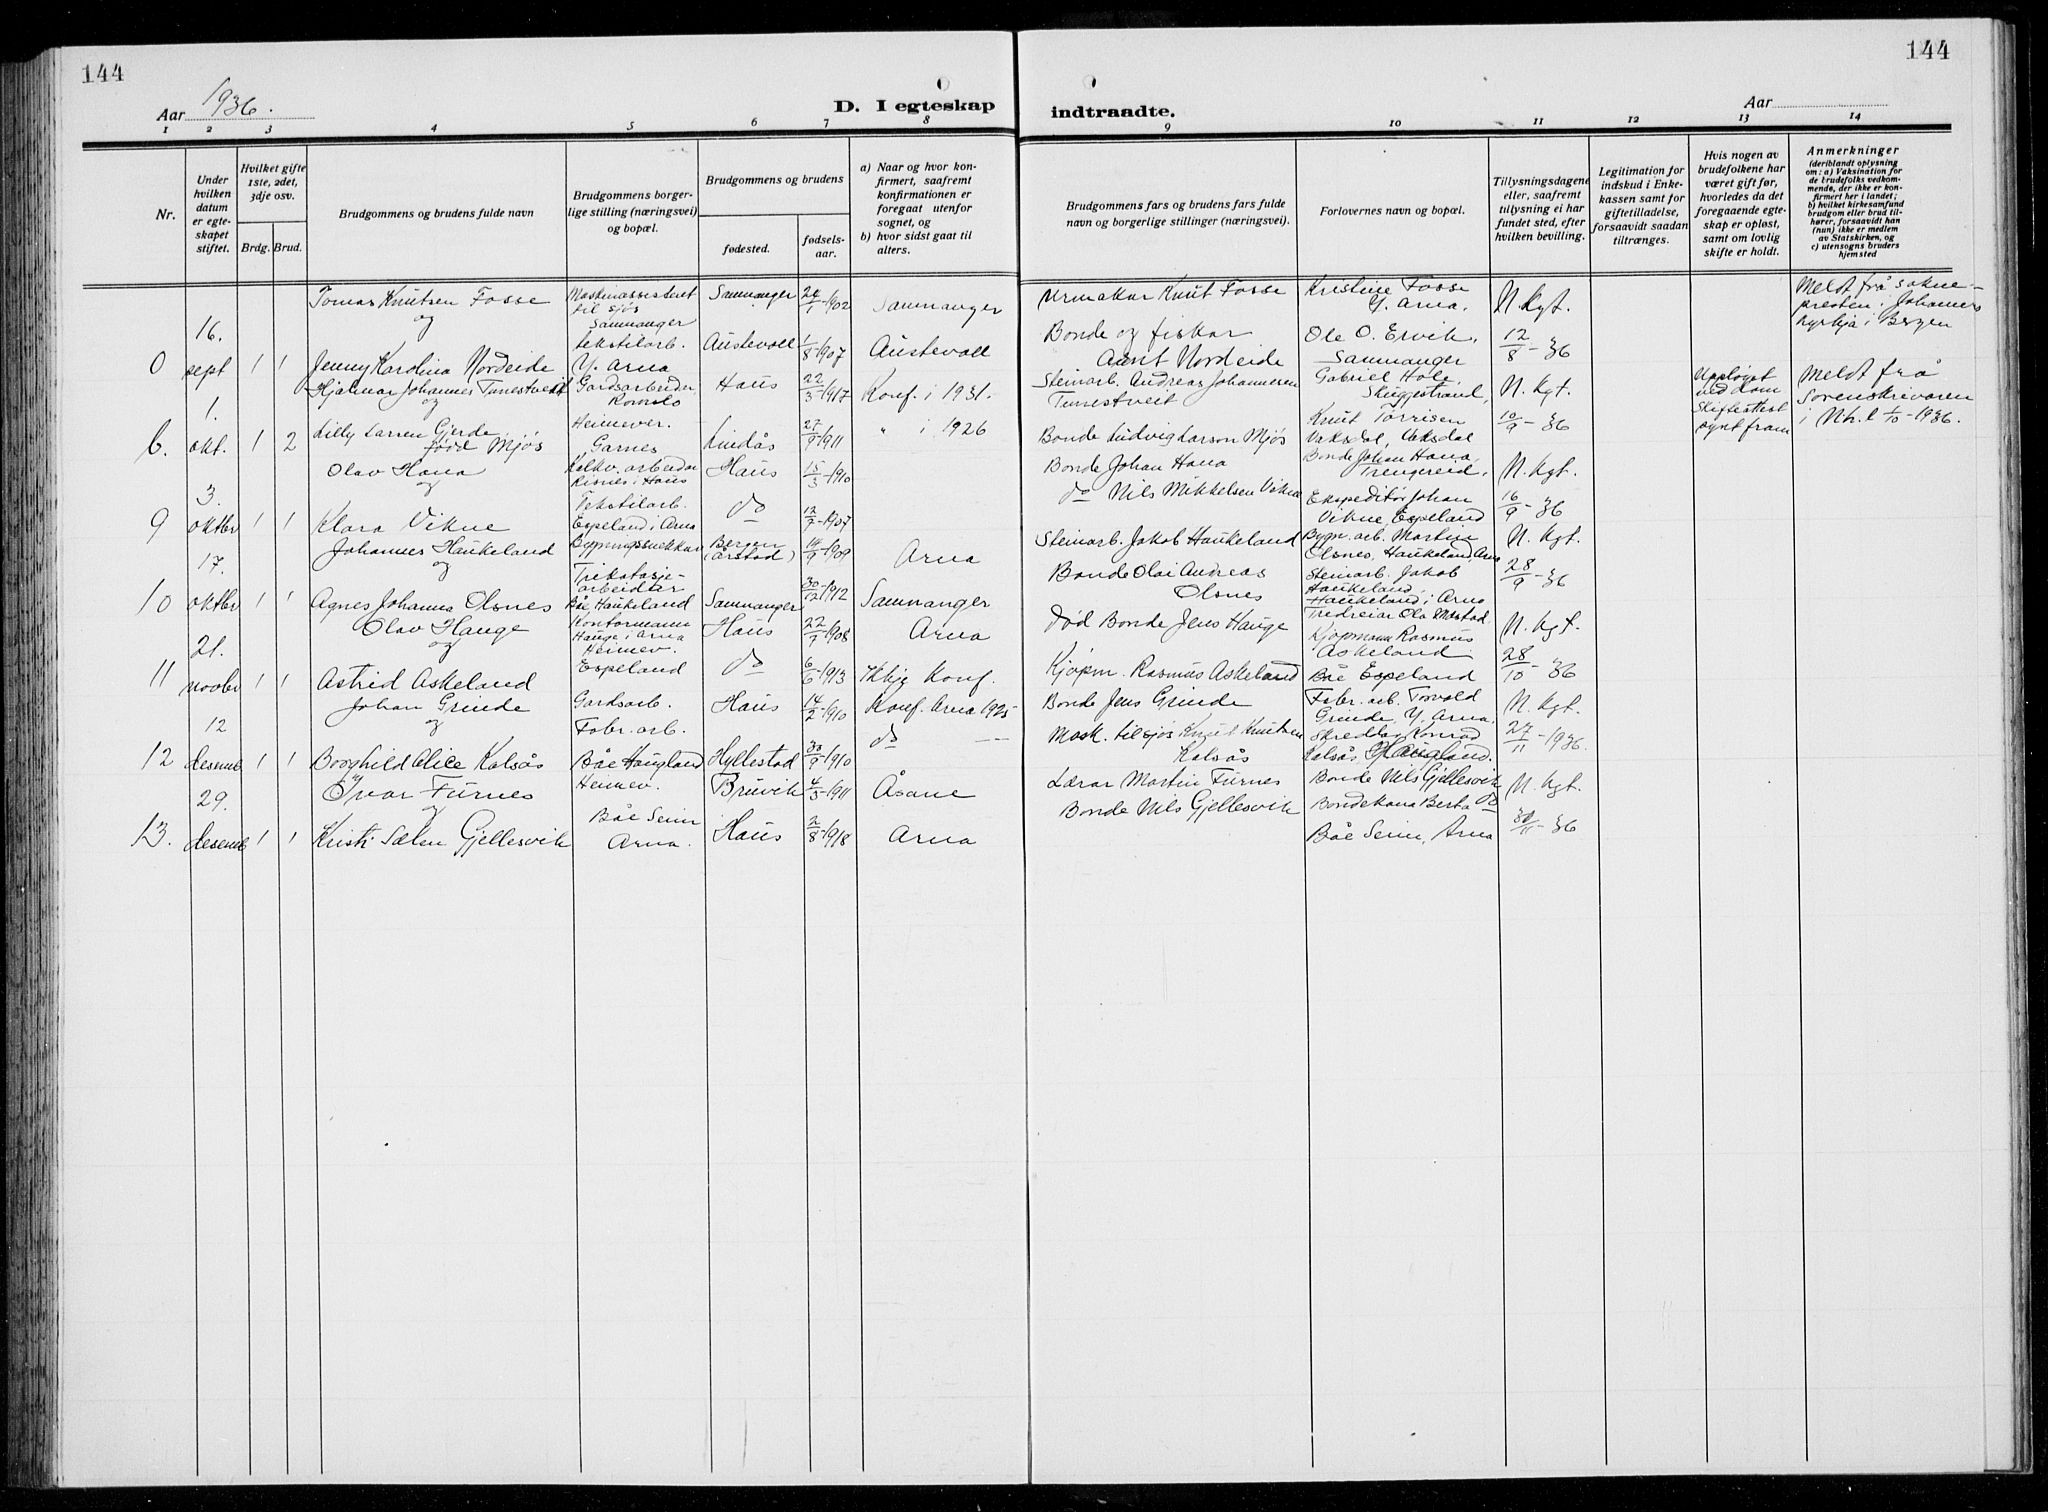 144
144
Aar 1936.
D. I egteskap
indtraadte.
Aar
1 2 3 4 5 6 7 8 9 10 11 12 13 14
Nr.
Under hvilken datum er egteskapet stiftet.
Hvilket gifte 1ste, 2det, 3dje osv.
Brdg. Brud.
Brudgommens og brudens fulde navn
Brudgommens borgerlige stilling (næringsvei) og bopæl.
Brudgommens og brudens
fødested.
fødselsaar.
a) Naar og hvor konfirmert, saafremt konfirmationen er foregaat utenfor sognet, og
b) hvor sidst gaat til alters.
Brudgommens fars og brudens fars fulde navn og borgerlige stillinger (næringsvei).
Forlovernes navn og bopæl.
Tillysningsdagene eller, saafremt tillysning ei har fundet sted, efter hvilken bevilling.
Legitimation for indskud i Enkekassen samt for giftetilladelse, forsaavidt saadan tiltrænges.
Hvis nogen av brudefolkene har været gift før, hvorledes da det foregaaende egteskap er opløst, samt om lovlig skifte er holdt.
Anmerkninger
(deriblandt oplysning om: a) Vaksination for de brudefolks vedkommende, der ikke er konfirmert her i landet;
b) hvilket kirkesamfund brudgom eller brud tilhører, forsaavidt han (hun) ikke er medlem av Statskirken, og
c) utensogns bruders hjemsted
Tomas Knutsen Fosse Maskinassistent til sjøs Samnanger Samnanger 1902 Samnanger Urmakar Knut Fosse Kristine Fosse Y. Arna. N. Kgt. Meldt frå soknepresten i Johannes kyrkja i Bergen
og
0 16. sept 1 1 Jenny Karolina Nordeide tekstilarb. Y. Arna Austevoll 1/8-1907 Austevoll Bonde og fiskar Nordeide Ole O. Ervik, Samnanger 12/8-36
Hjalmar Johannes Tunestveit Gardsarbeider, Romslo Haus 22/3-1917 Konf. i 1931. Steinarb. Andreas Johannesen Tunestveit Gabriel Hole, Skuggestrand, N. Kgt. Uppløyst ved dom Skifteattest synt fram Meldt frå Sorenskrivaren i Nhr.l. 1/10-1936.
og
6. 1. okt. 1 2 Lilly Larsen Gjerde, født Mjøs Heimever. Garnes Lindås 27/9-1911 " i 1926 Bonde Ludvig Larson Mjøs Knut Torrisen Vaksdal, Vaksdal 10/9-36
Olav Hana Kalkv. arbeidar Risnes i Haus Haus 15/3-1910 Bonde Johan Hana Bonde Johan Hana, Trengereid, N. Kgt.
og
9 3. oktbr 1 1 Klara Vikne Tekstilarb. Espeland i Arna do 12/7-1907 do Nils Mikkelsen Vikne Ekspeditør Johan Vikne, Espeland 16/9-36
Johannes Haukeland Bygningssnekkar Bergen (Årstad) 14/9-1909 Arna Steinarb. Jakob Haukeland Bygn. arb. Martin Olsnes, Haukeland, Arna N. Kgt.
og
10 17. oktbr 1 1 Agnes Johanna Olsnes Trikotasjearbeidter Båe, Haukeland Samnanger 30/12-1912 Samnanger Bonde Olai Andreas Olsnes Steinarb. Jakob Haukeland, Haukeland i Arna 28/9-36
Olav Hauge Kontormann Hauge i Arna Haus 22/9-1908 Arna død Bonde Jens Hauge Tredreiar Ola Mostad N. Kgt.
og
11 21. novbr 1 1 Astrid Askeland Heimev. Espeland do 6/6-1913 Ikkje Konf. Kjøpm. Rasmus Askeland Kjøpmann Rasmus Askeland Båe Espeland 28/10-36
Johan Grinde Gardsarb. Haus 14/2-1910 Konf. Arna 1925 Bonde Jens Grinde Fabr. arb. Torvald Grinde, Y. Arna. N. Kgt.
og
12 12 desemb 1 1 Borghild Alice Kalsås Fabr. arb. Båe Haugland Hyllestad 30/9-1910 do — Mask. til sjøs Knut Knutsen Kalsås Skreddar Konrad Kalsås Haugland. 27/11-1936.
Ivar Furnes Heimev. Bruvik 4/3-1911 Åsane Lærar Martin Furnes Bonde Nils Gjellesvik N. Kgt.
og
13. 29. desemb 1 1 Kristi Sælen Gjellesvik Båe Seim Arna. Haus 2/8-1918 Arna Bonde Nils Gjellesvik Bondekona Berta do Båe Seim, Arna 30/11-36